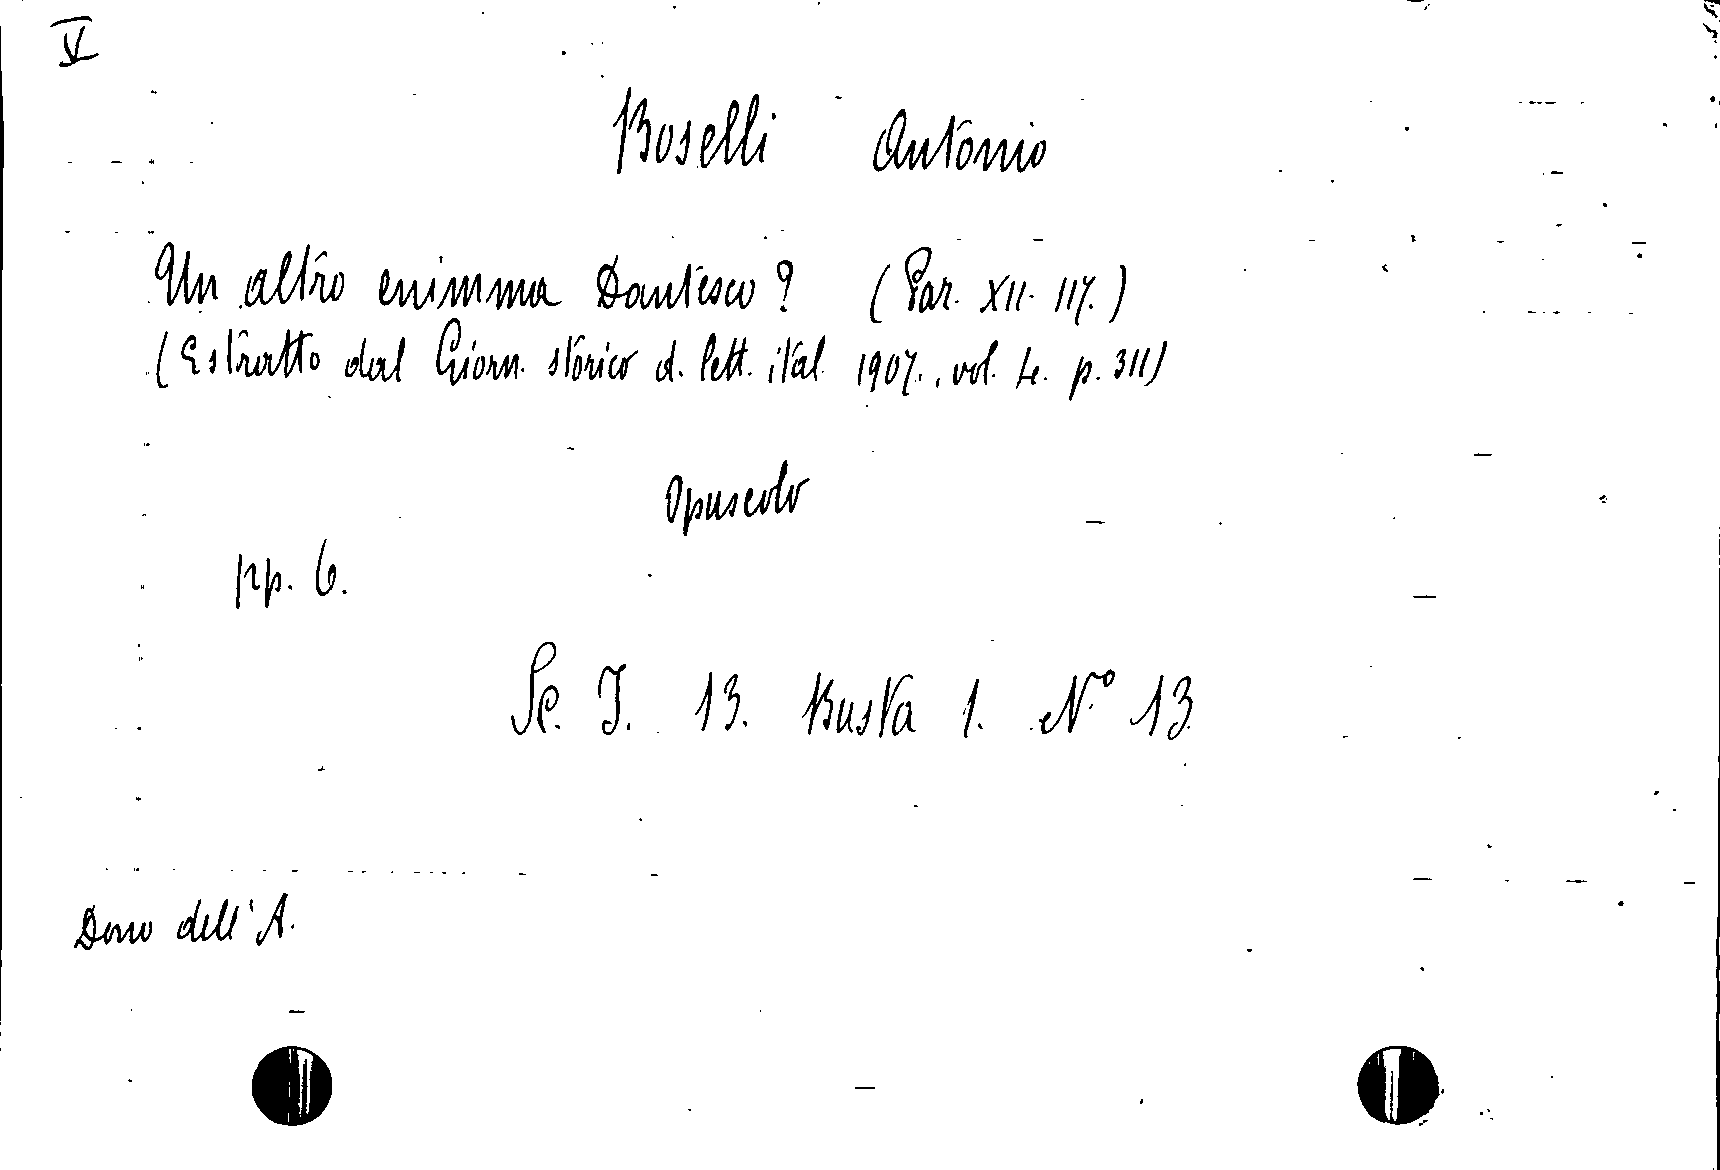 V
Boselli Antonio
Un altro enimma Dantesco? (Par. XII. 117.)
(Estratto dal Giorn. storico d. lett. ital. 1907., vol. p. 311)
Opuscolo
pp. 6.
Sc. I. 13. Busta 1. N.º 13
Dono dell'A.